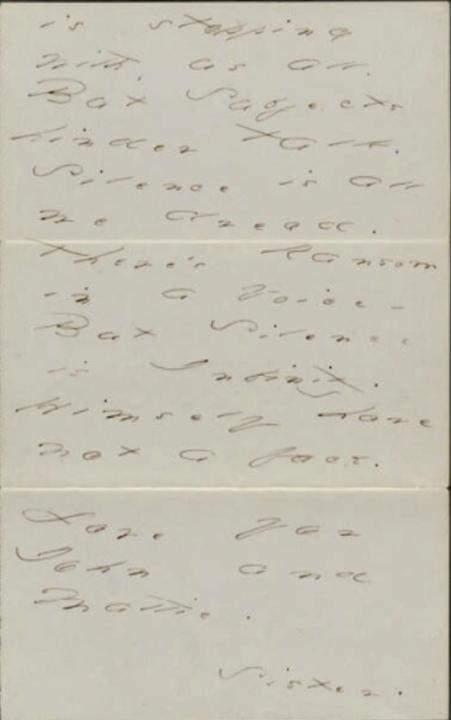 is stopping
with us all.
But Subjects
hinder talk.
Silence is all
we dread.
There's Ransom
in a Voice -
But Silence
is Infinity.
Himself have
not a face.
Love for
John and
Mattie.
Sister.